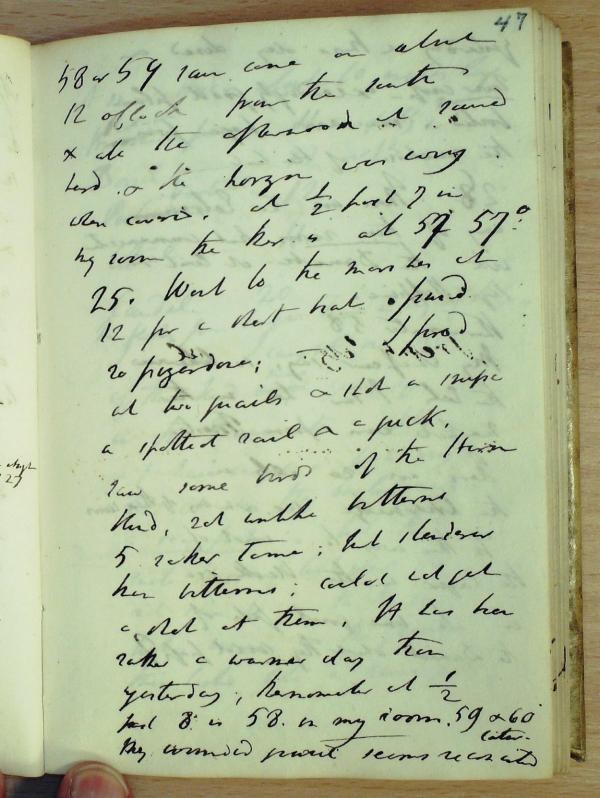 47
58 or 59 rain came on about
12 oclock from the south
& all the afternoon it rained
hard. & the horizon was every
where covered. at ½ past 7 in
my room the ther. is at 57 57°.
25. Went to the marshes at
12 for a short boat. found
no fired
at two quails & shot a snipe
a spotted rail & a jack.
saw some birds of the Heron
kind, not unlike bitterns
& rather tame; but slenderer
than bitterns; could not get
a shot at them. It has been
rather a warmer day than
yesterday; thermometer at ½
past 8 is 58. in my room. 59 & 60
later.
My wounded seems recovered